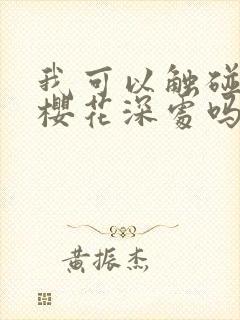 我可以触碰
樱花深处吗
黄振杰